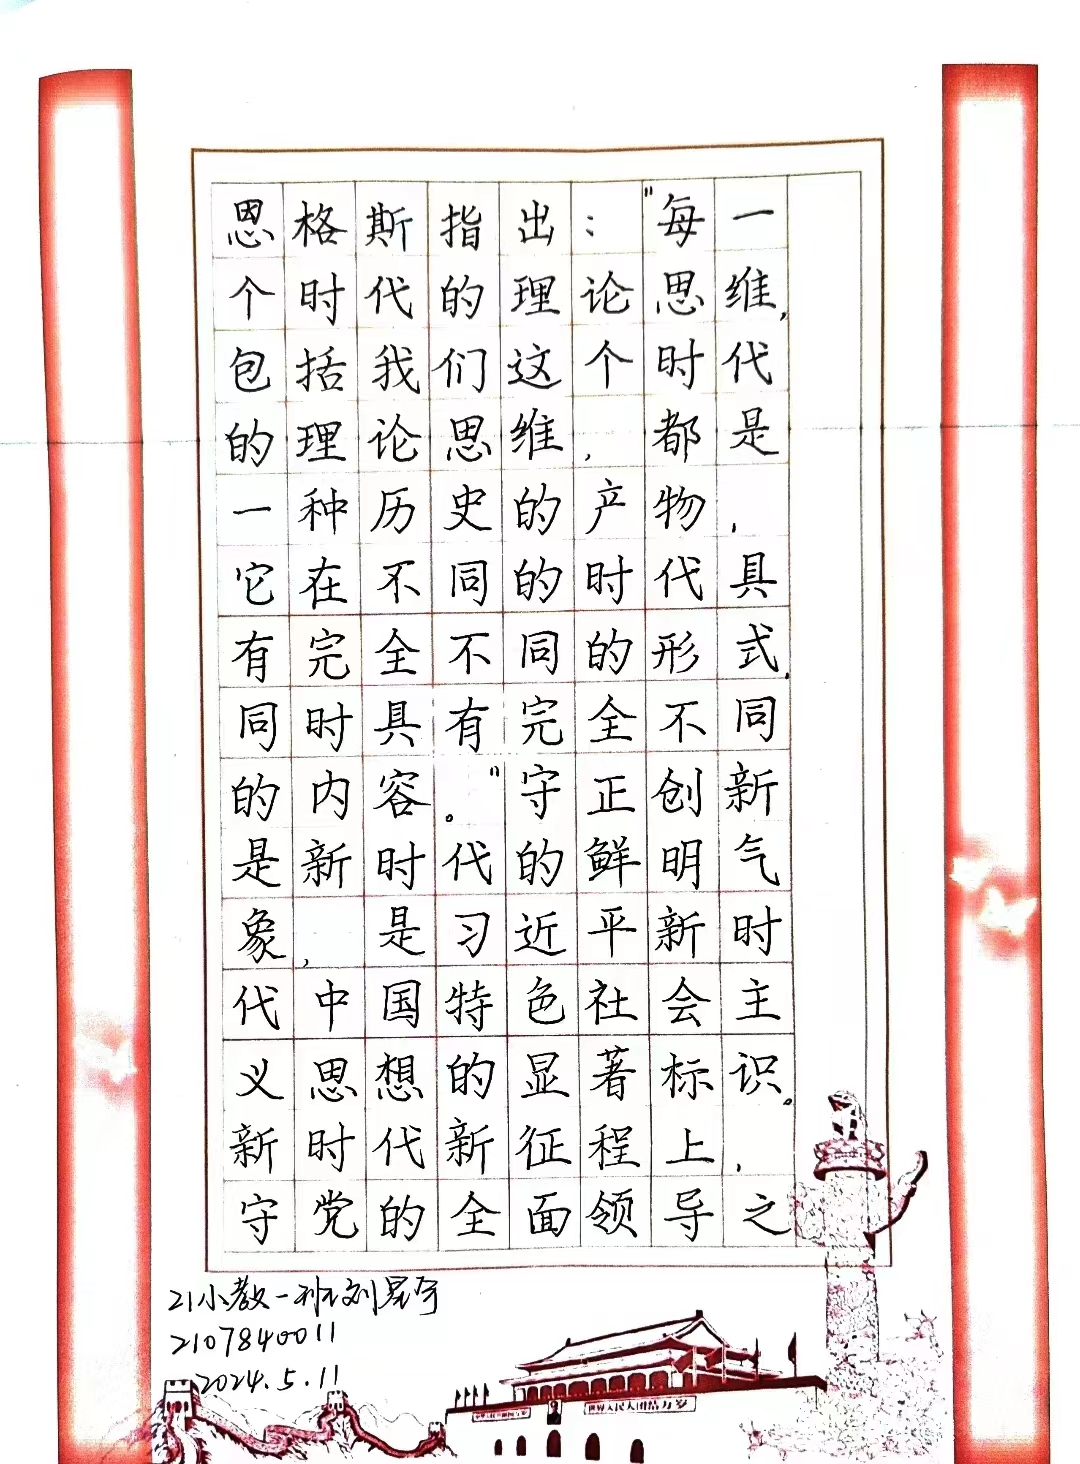 恩格斯指出："每一
个时代的理论思维,
包括我们这个时代
的理论思维,都是
一种历史的产物,
它在不同的时代具
有完全不同的形式,
同时具有完全不同
的内容。"守正创新
是新时代的鲜明气
象,是习近平新时
代中国特色社会主
义思想的显著标识。
新时代新征程上,
守党的全面领导之
21小教一班刘昱宇
2107840011
2024.5.11
中华人民共和国万岁
世界人民大团结万岁